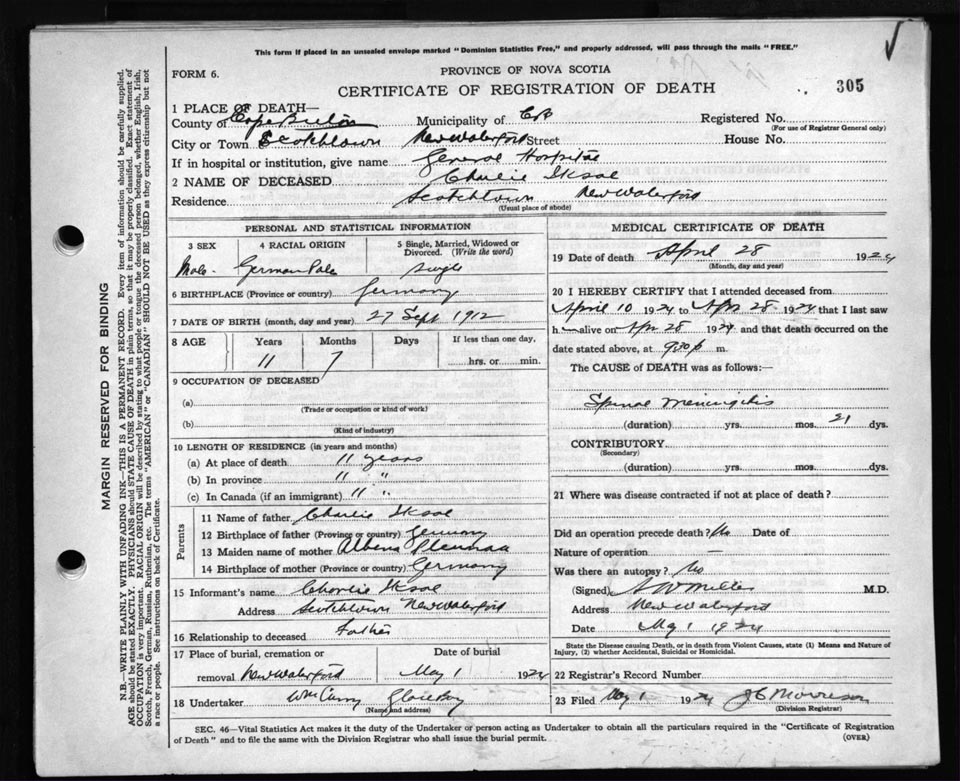 This form if placed in an unsealed envelope marked "Dominion Statistics Free," and properly addressed, will pass through the mails "FREE."
FORM 6.
PROVINCE OF NOVA SCOTIA
CERTIFICATE OF REGISTRATION OF DEATH
305
1 PLACE OF DEATH—
County of Cape Breton Municipality of CB Registered No.
(For use of Registrar General only)
City or Town Scotchtown New Waterford Street House No.
If in hospital or institution, give name General Hospital
2 NAME OF DECEASED Charlie Iksal
Residence Scotchtown New Waterford
(Usual place of abode)
PERSONAL AND STATISTICAL INFORMATION
3 SEX 4 RACIAL ORIGIN 5 Single, Married, Widowed or Divorced. (Write the word)
Male- German Pole single
6 BIRTHPLACE (Province or country) Germany
7 DATE OF BIRTH (month, day and year) 27 Sept 1912
8 AGE Years Months Days If less than one day,
11 7 hrs. or min.
9 OCCUPATION OF DECEASED
(a)
(Trade or occupation or kind of work)
(b)
(Kind of industry)
10 LENGTH OF RESIDENCE (in years and months)
(a) At place of death 11 years
(b) In province 11 "
(c) In Canada (if an immigrant) 11 "
Parents
11 Name of father Charlie Iksal
12 Birthplace of father (Province or country) Germany
13 Maiden name of mother Albena
14 Birthplace of mother (Province or country) Germany
15 Informant's name Charlie Iksal
Address Scotchtown New Waterford
16 Relationship to deceased Father
17 Place of burial, cremation or removal Date of burial
New Waterford May 1 1924
18 Undertaker Wm Curry Glace Bay
(Name and address)
MEDICAL CERTIFICATE OF DEATH
19 Date of death April 28 1924
(Month, day and year)
20 I HEREBY CERTIFY that I attended deceased from
April 10 1924 to Apr 28 1924 that I last saw
h alive on Apr 28 1924 and that death occurred on the
date stated above, at 930 p m.
The CAUSE of DEATH was as follows:—
Spinal Meningitis
(duration) yrs. mos. 21 dys.
CONTRIBUTORY
(Secondary)
(duration) yrs. mos. dys.
21 Where was disease contracted if not at place of death?
Did an operation precede death? No Date of
Nature of operation —
Was there an autopsy? No
(Signed) Miller M.D.
Address New Waterford
Date May 1 1924
State the Disease causing Death, or in death from Violent Causes, state (1) Means and Nature of Injury, (2) whether Accidental, Suicidal or Homicidal.
22 Registrar's Record Number
23 Filed May 1 1924 J C Morrison
(Division Registrar)
SEC. 46—Vital Statistics Act makes it the duty of the Undertaker or person acting as Undertaker to obtain all the particulars required in the "Certificate of Registration
of Death" and to file the same with the Division Registrar who shall issue the burial permit. (OVER)
MARGIN RESERVED FOR BINDING
N.B.—WRITE PLAINLY WITH UNFADING INK—THIS IS A PERMANENT RECORD. Every item of information should be carefully supplied.
AGE should be stated EXACTLY. PHYSICIANS should STATE CAUSE OF DEATH in plain terms, so that it may be properly classified. Exact statement of
OCCUPATION is very important. RACIAL ORIGIN will be described by stating to what people or tongue the deceased person belonged, whether English, Irish,
Scotch, French, German, Russian, Ruthenian, etc. The terms "AMERICAN" or "CANADIAN" SHOULD NOT BE USED as they express citizenship but not
a race or people. See instructions on back of Certificate.